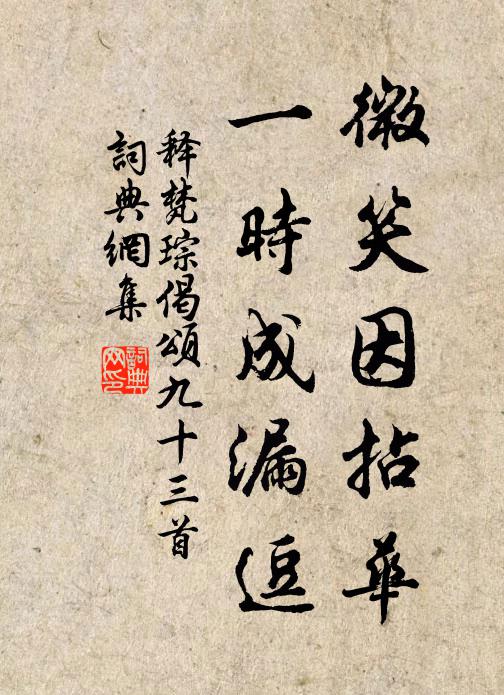 微笑因拈華
一時成漏逗
释梵琮偈頌九十三首
詞典網集
詞典
网印